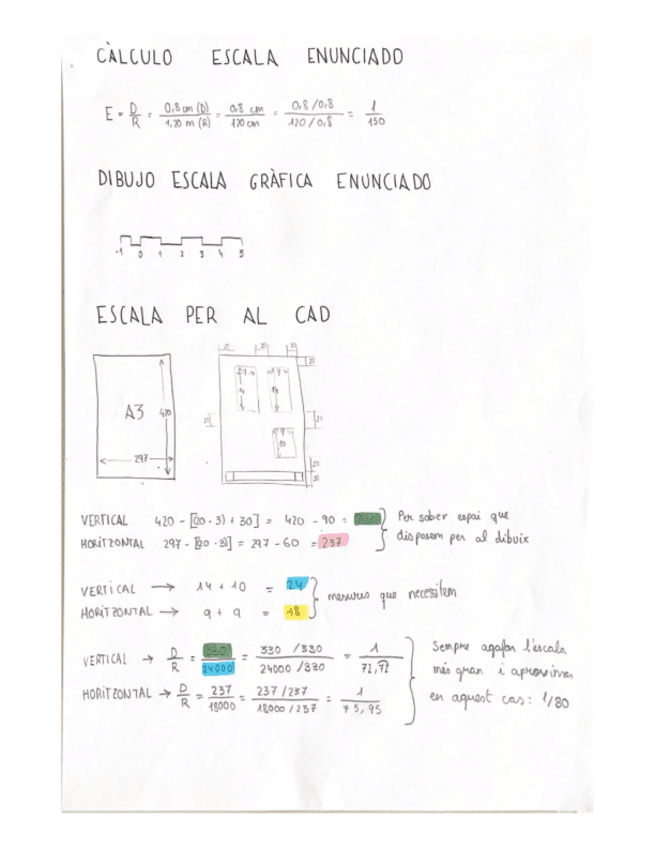 CÀLCULO ESCALA ENUNCIADO
E = D/R = 0,8 cm (D)/1,20 m (R) = 0,8 cm/120 cm = 0,8/0,8/120/0,8 = 1/150
DIBUJO ESCALA GRÀFICA ENUNCIADO
-1 0 1 2 3 4 5
ESCALA PER AL CAD
A3 420
297
20 20 20
20
9 9
14 14
20 20
9
10
20
30
VERTICAL 420 - [(20 · 3) + 30] = 420 - 90 = 330
HORITZONTAL 297 - [20 · 3] = 297 - 60 = 237
Per saber espai que
disposem per al dibuix
VERTICAL → 14 + 10 = 24
HORITZONTAL → 9 + 9 = 18
mesures que necessitem
VERTICAL → D/R = 330/24000 = 330 /330/24000 /330 = 1/72,72
HORITZONTAL → D/R = 237/18000 = 237 /237/18000 /237 = 1/75,95
Sempre agafar l'escala
més gran i aproximar
en aquest cas: 1/80